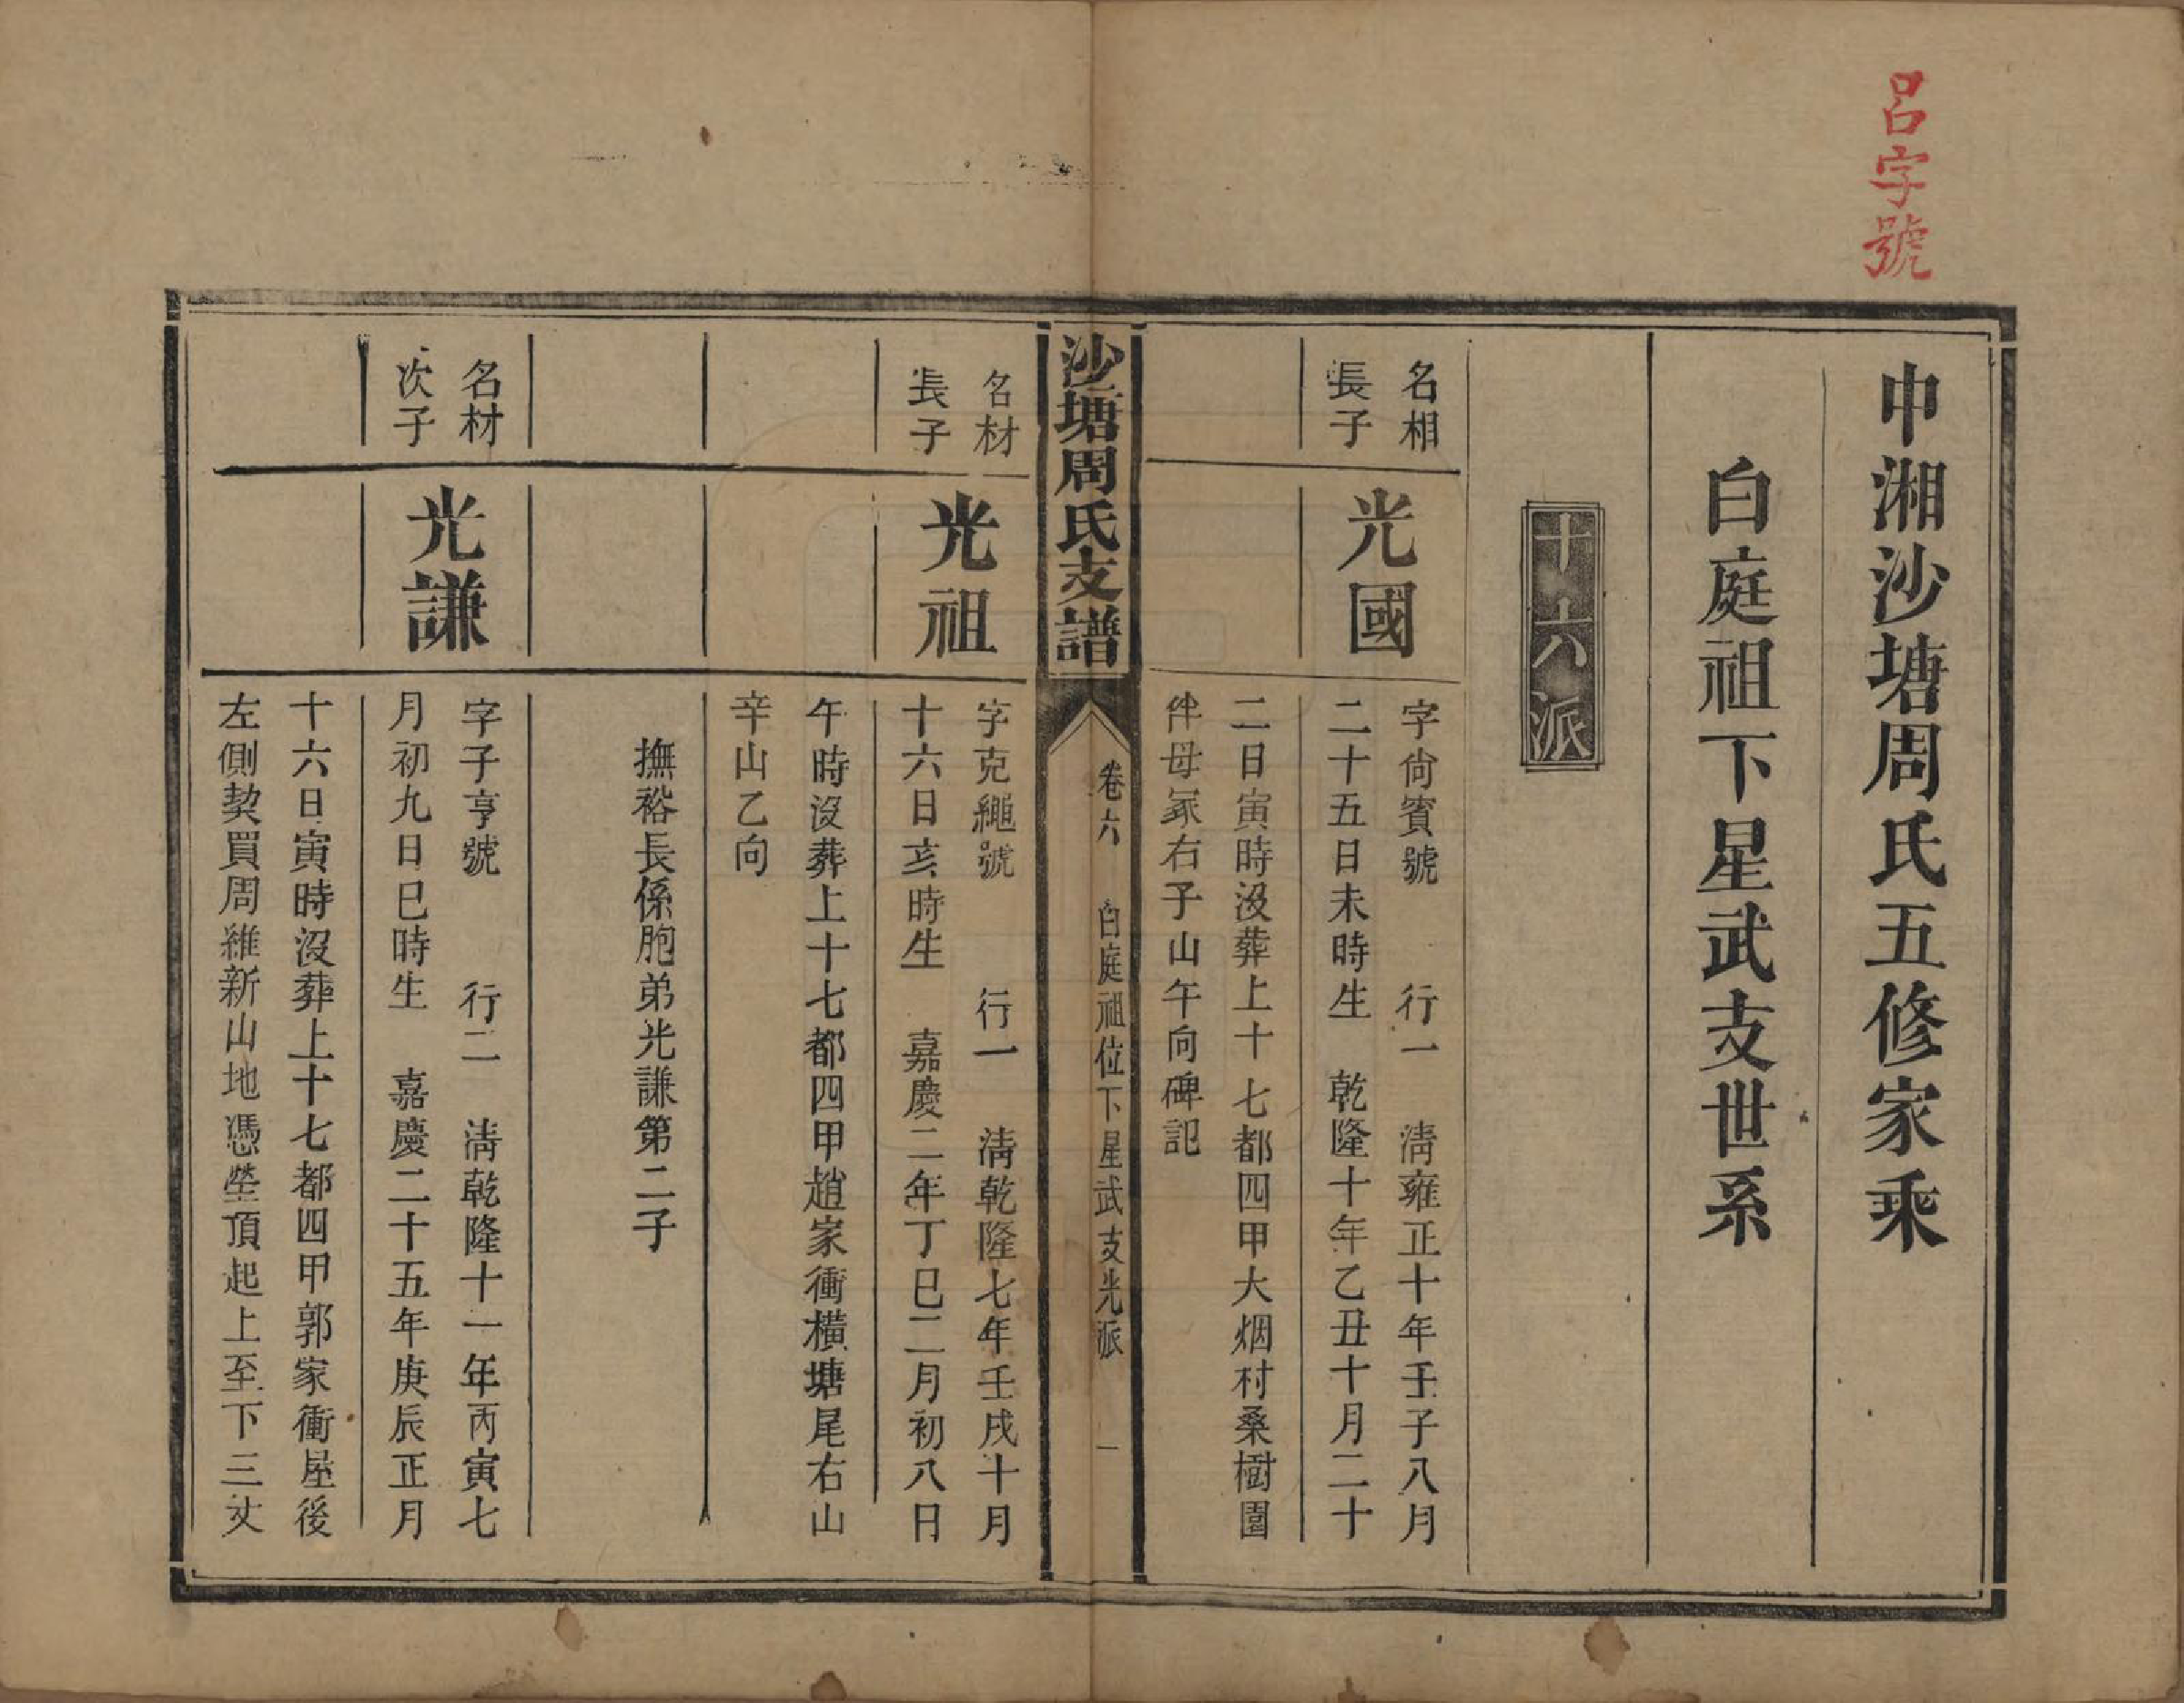 呂字號
中湘沙塘周氏五修家乘
白庭祖下星武支世系
十六派
名相
長子
光國
字尙賓號　行一　淸雍正十年壬子八月
二十五日未時生　乾隆十年乙丑十月二十
二日寅時沒葬上十七都四甲大烟村桑樹園
伴母冢右子山午向碑記
沙塘周氏支譜
卷六　白庭祖位下星武支光派　一
名材
長子
光祖
字克繩號　行一　淸乾隆七年壬戌十月
十六日亥時生　嘉慶二年丁巳二月初八日
午時沒葬上十七都四甲趙家衝橫塘尾右山
辛山乙向
撫裕長係胞弟光謙第二子
名材
次子
光謙
字子亨號　行二　淸乾隆十一年丙寅七
月初九日巳時生　嘉慶二十五年庚辰正月
十六日寅時沒葬上十七都四甲郭家衝屋後
左側契買周維新山地憑塋頂起上至下三丈